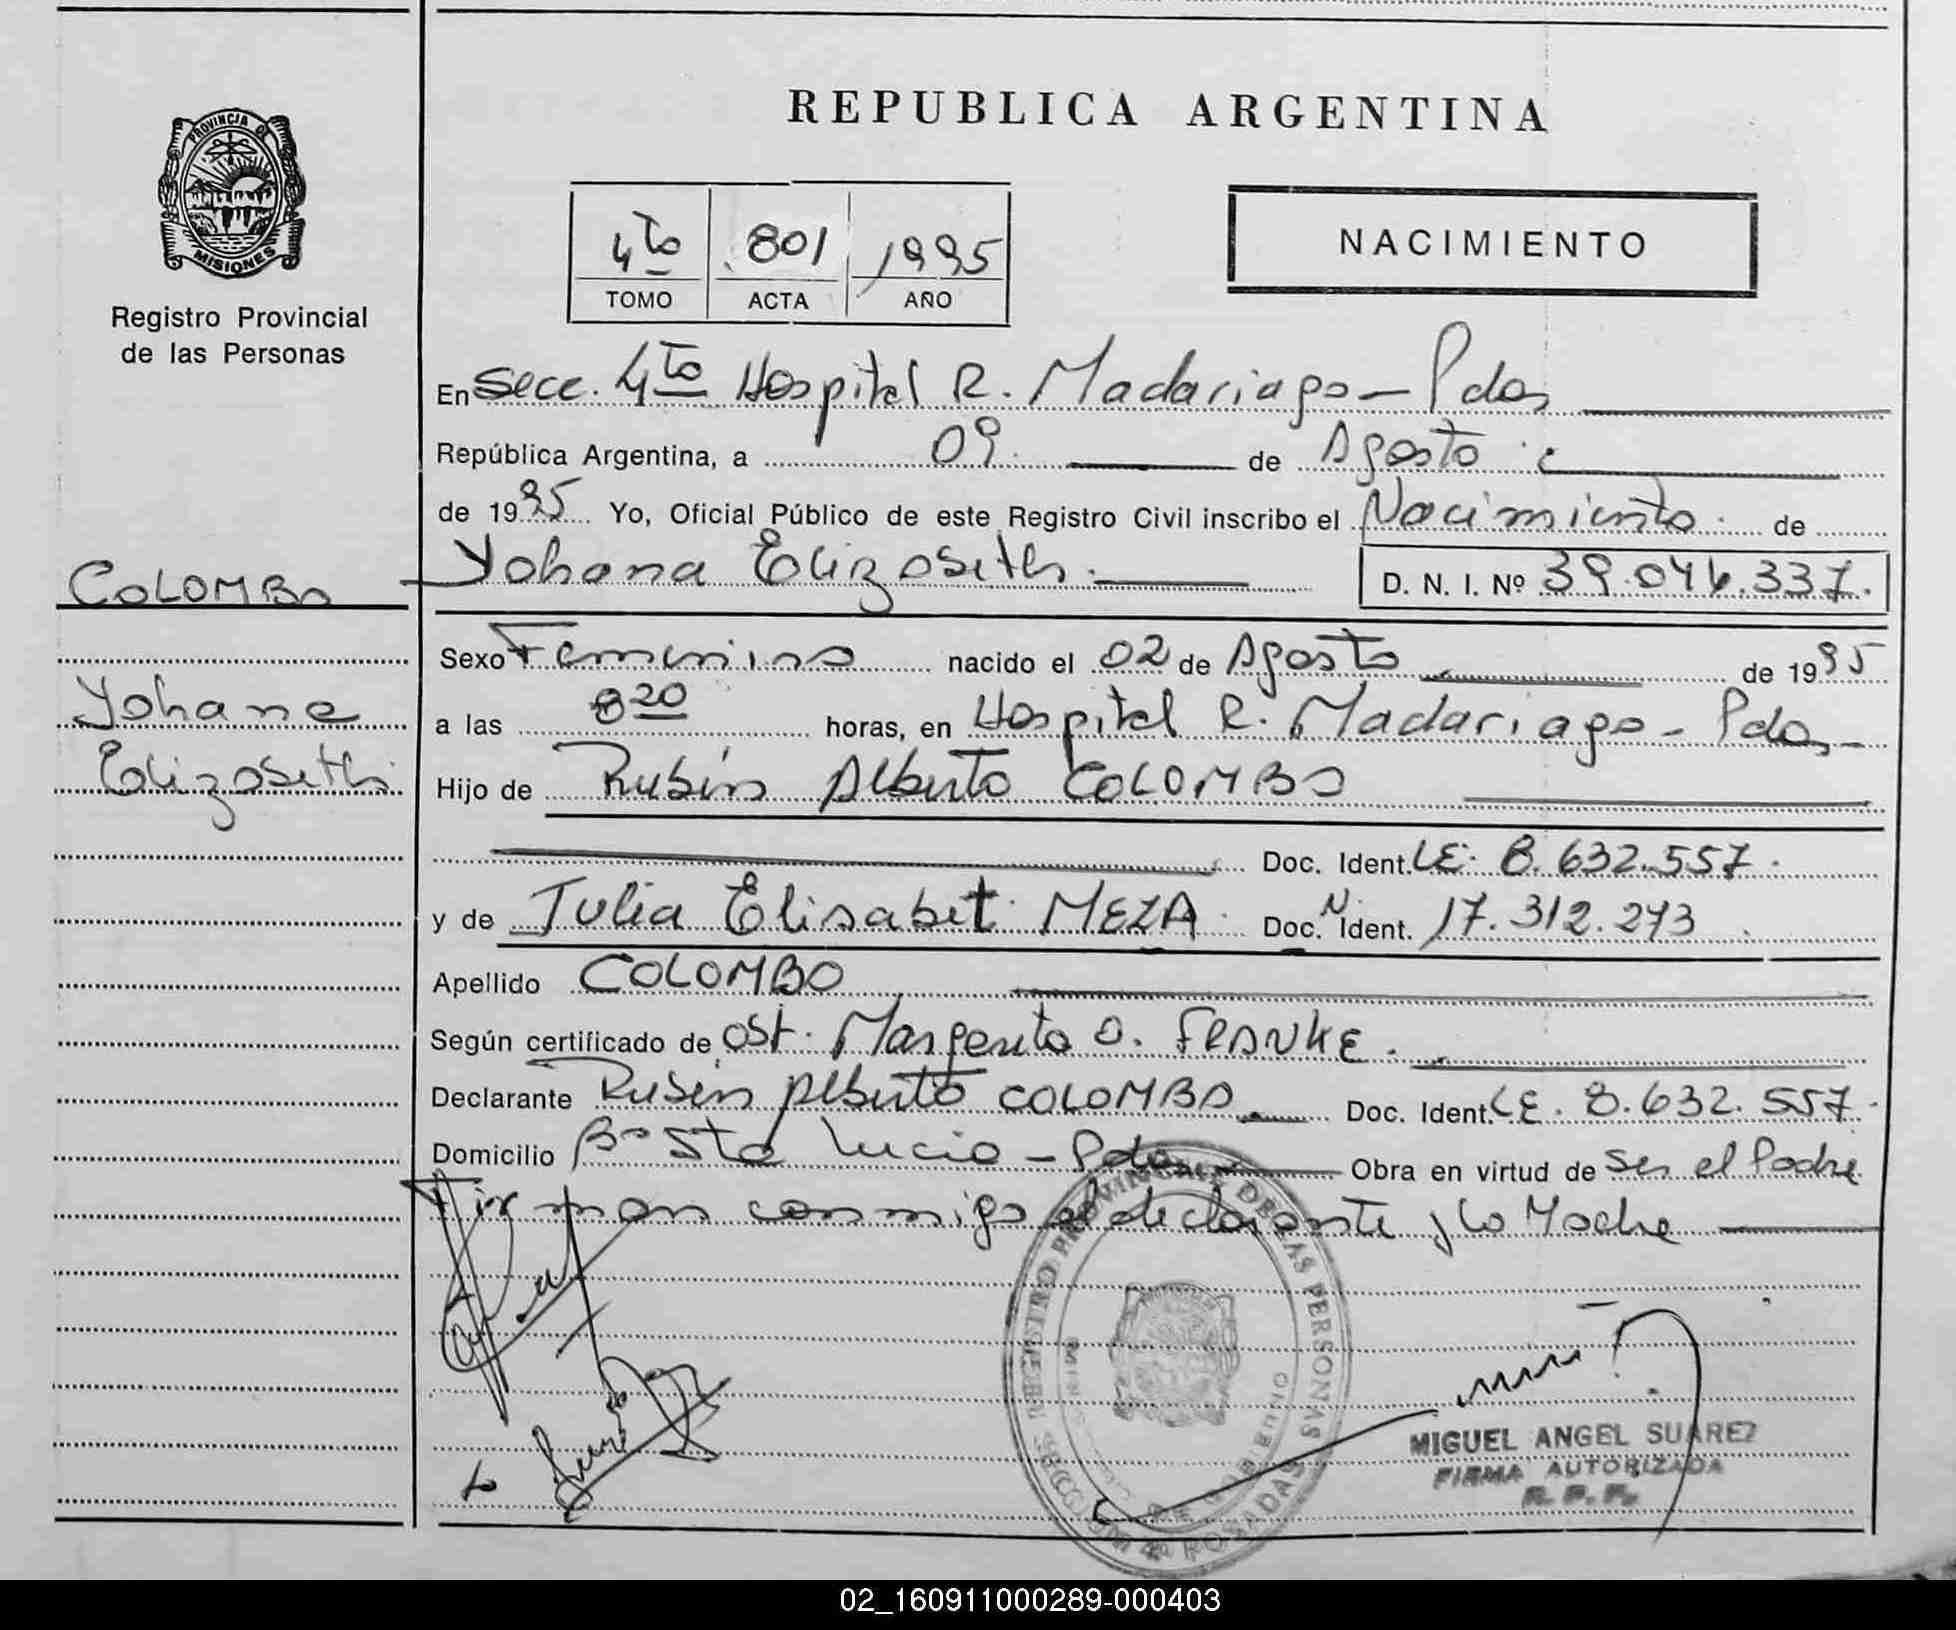 REPUBLICA ARGENTINA
PROVINCIA DE
MISIONES
Registro Provincial
de las Personas
4to 801 1995
TOMO ACTA AÑO
NACIMIENTO
En Secc. 4to Hospital R. Madariaga - Pdas
República Argentina, a 09 de Agosto
de 1995 Yo, Oficial Público de este Registro Civil inscribo el Nacimiento de
COLOMBO
Yohana Elizabeth D. N. I. Nº 39.046.337.
Sexo Femenino nacido el 02 de Agosto de 1995
Yohana
a las 8 20 horas, en Hospital R. Madariaga - Pdas -
Elizabeth
Hijo de Rubén Alberto COLOMBO
Doc. Ident. LE. 8.632.557.
y de Julia Elisabet MEZA Doc. N. Ident. 17.312.273
Apellido COLOMBO
Según certificado de Ost. Margarita O. FRANKE.
Declarante Rubén Alberto COLOMBO Doc. Ident. LE. 8.632.557.
Domicilio Bº Sta Lucia - Pdas Obra en virtud de Ser el Padre
Firman conmigo el declarante y la Madre
REGISTRO PROVINCIAL DE LAS PERSONAS
POSADAS
MIGUEL ANGEL SUAREZ
FIRMA AUTORIZADA
R. P. P.
02_160911000289-000403